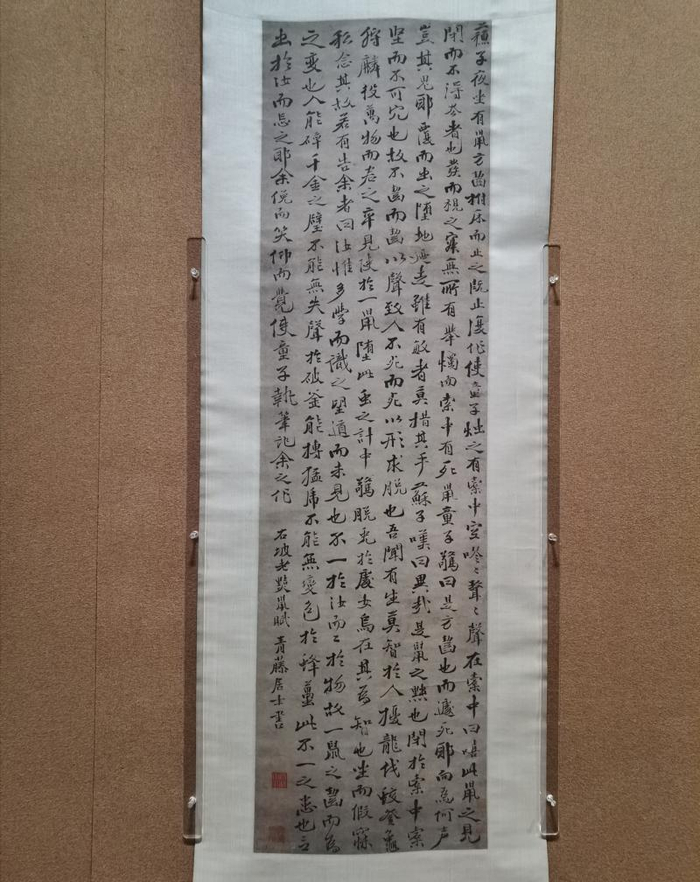 蘇子夜坐有鼠方齧拊床而止之既止復作使童子燭之有橐中空嘐〻聲〻聲在橐中曰嘻此鼠之見
閉而不得去者也發而視之寂無所有舉燭而索中有死鼠童子驚曰是方齧也而遽死耶向為何声
豈其鬼耶覆而出之墮地走雖有敏者莫措其手蘇子嘆曰異哉是鼠之黠也閉於橐中橐
堅而不可穴也故不齧而齧以聲致人不死而死以形求脫也吾聞有生莫智於人擾龍伐蛟登龜
狩麟役萬物而君之卒見使於一鼠墮此蟲之計中驚脫兔於處女烏在其為智也坐而假寐
私念其故若有告余者曰汝惟多學而識之望道而未見也不一於汝而二於物故一鼠之齧而為
之變也人能碎千金之璧不能無失聲於破釜能搏猛虎不能無變色於蜂蠆此不一之患也言
出於汝而忘之耶余俛而笑仰而覺使童子執筆記余之作 右坡老黠鼠賦 青藤居士書